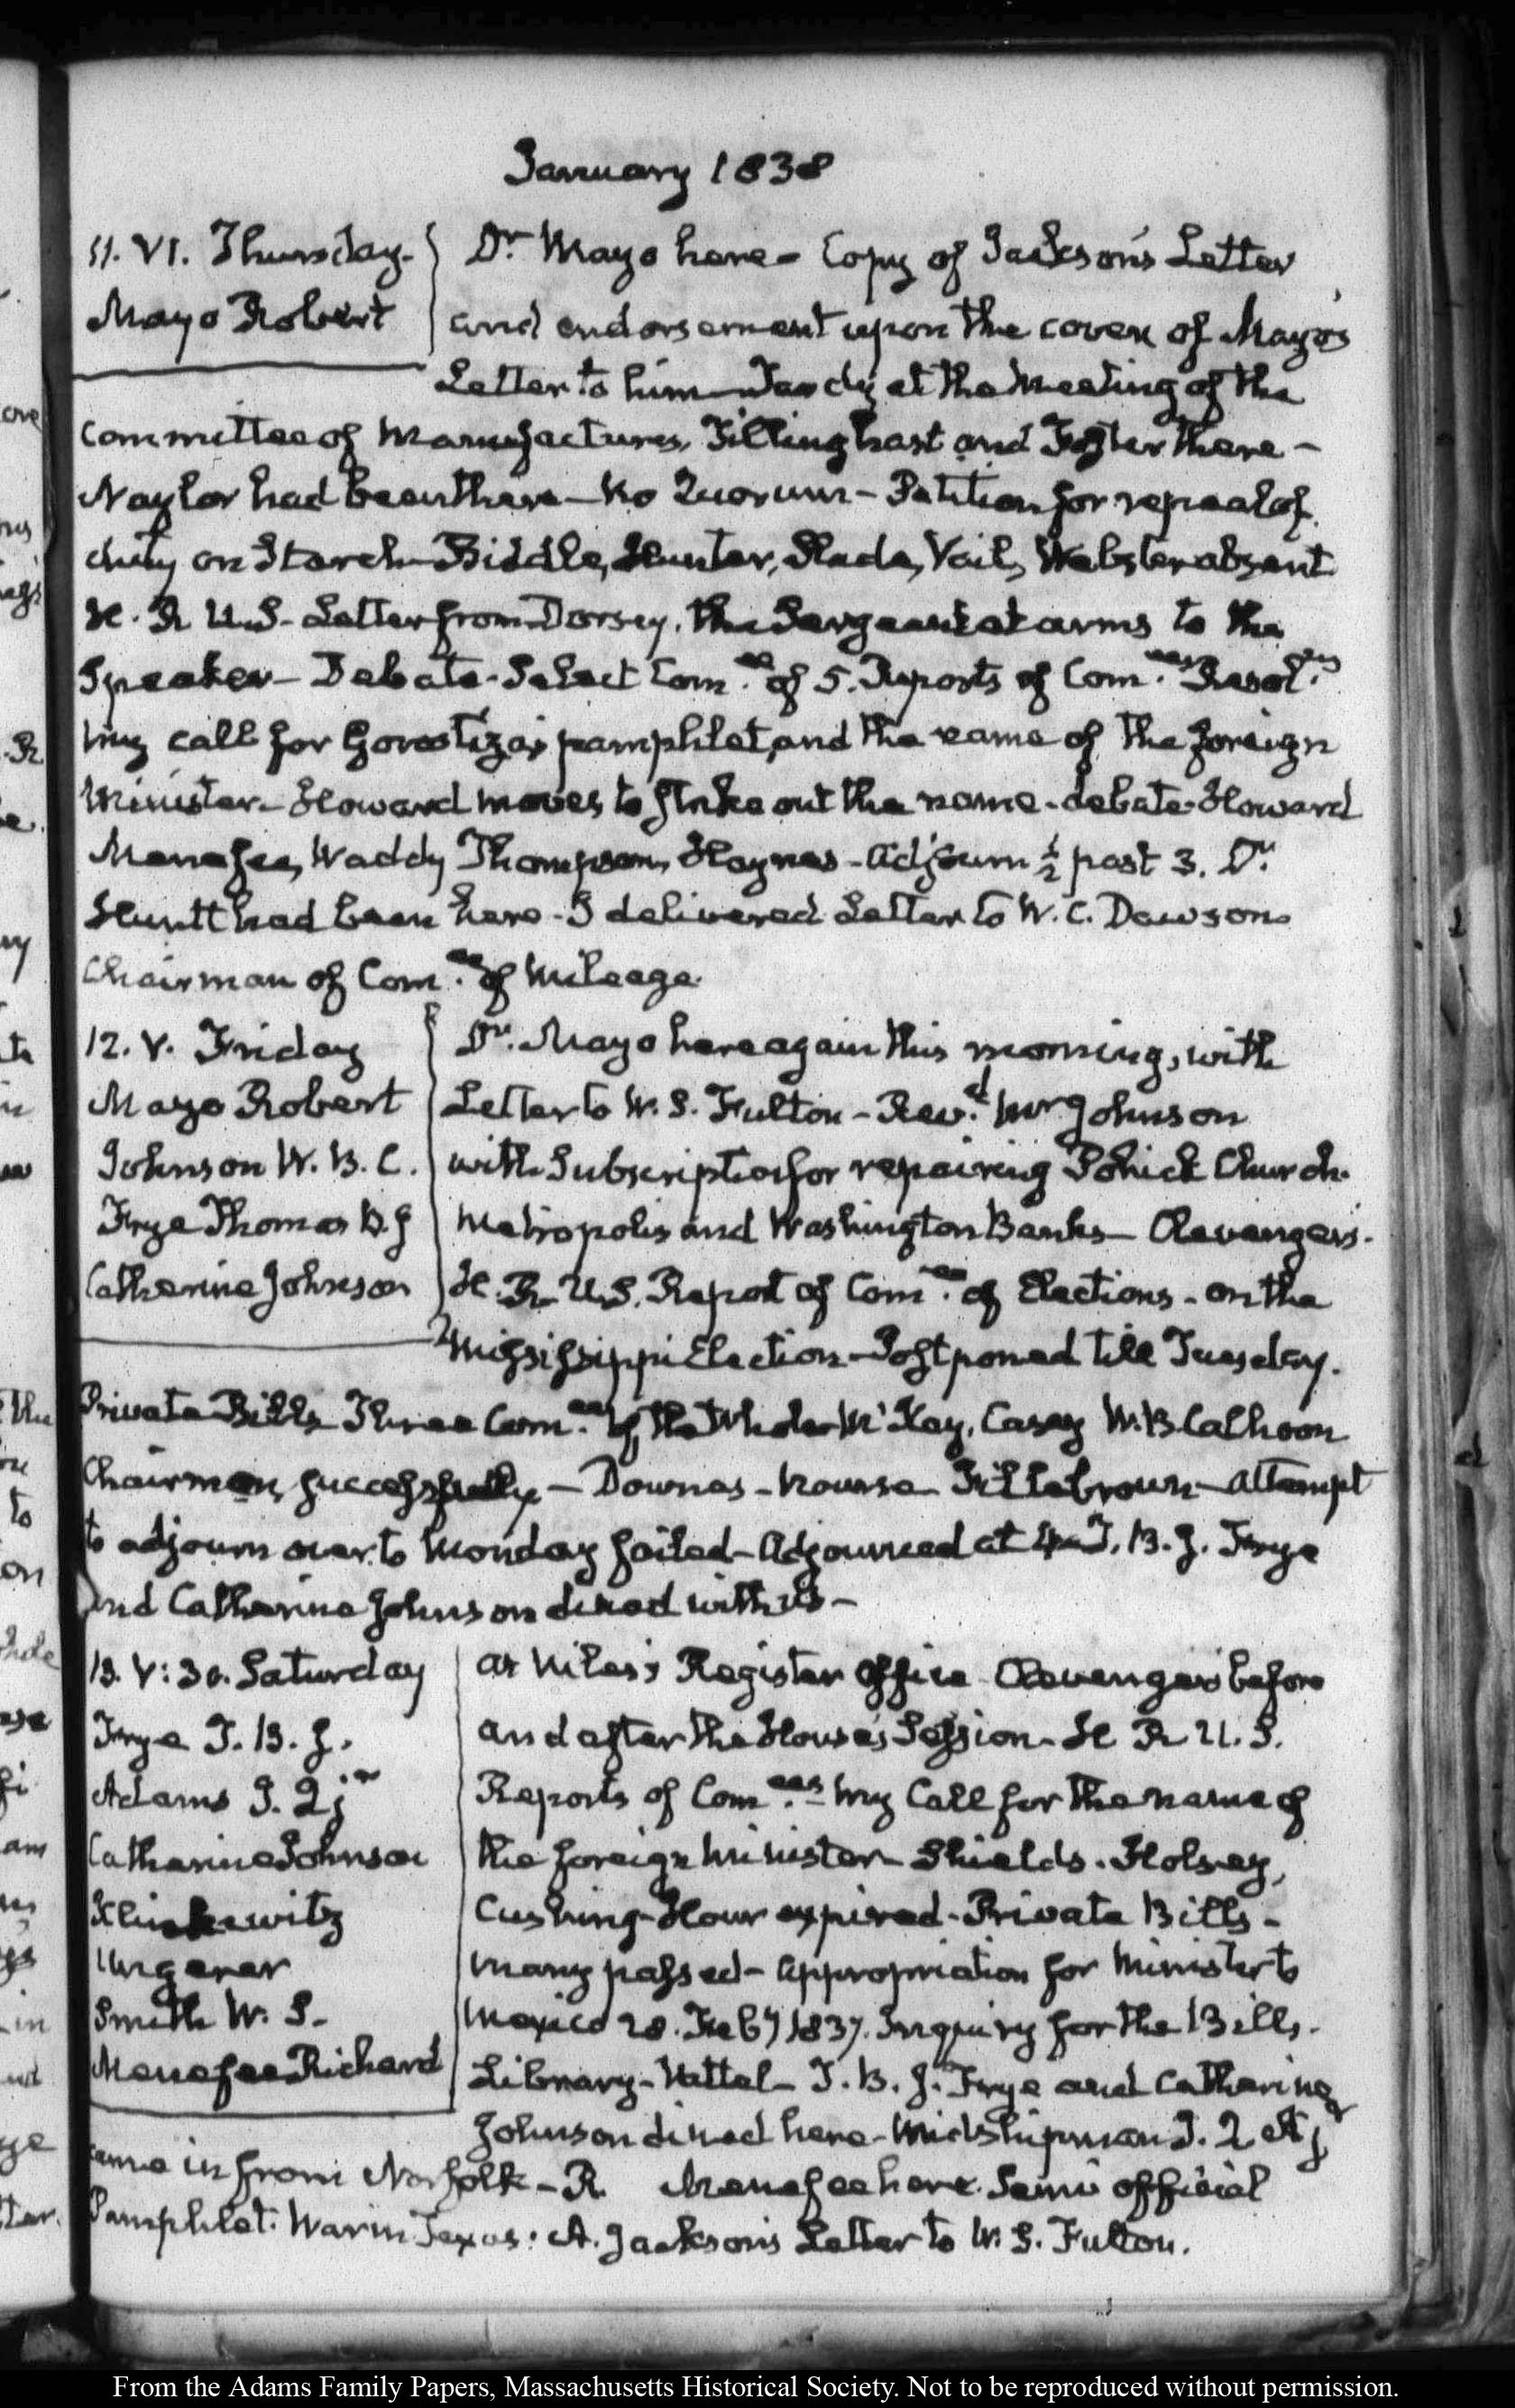 January 1838
11. VI. Thursday.
Mayo Robert
Dr. Mayo here – Copy of Jackson's Letter
and endorsement upon the cover of Mayo's
Letter to him – Tardy at the Meeting of the
Committee of Manufactures, Tillinghast and Foster there –
Naylor had been there – No Quorum – Petition for repeal of
duty on Starch – Biddle, Hunter, Slade, Vail, Webster absent
H. R. U.S. Letter from Dorsey, the Sergeant at arms to the
Speaker – Debate – Select Com.ee of 5. Reports of Com.ees Resol.ns
My call for Gorostiza's pamphlet, and the name of the foreign
Minister – Howard moves to strike out the name – debate – Howard
Menefee, Waddy Thompson, Haynes – Adjourn ½ past 3. Dr.
Huntt had been here – I delivered Letter to W. C. Dawson
Chairman of Com.ee of Mileage.
12. V. Friday
Mayo Robert
Johnson W. B. C.
Frye Thomas B. J
Catherine Johnson
Dr. Mayo here again this morning, with
Letter to W. S. Fulton – Rev.d Mr Johnson
with Subscription for repairing Pohick Church.
Metropolis and Washington Banks – Clevenger's.
H. R. U.S. Report of Com.ee of Elections – on the
Mississippi Election – Postponed till Tuesday.
Private Bills Three Com.ees of the Whole McKay, Casey W. B Calhoon
Chairmen, successively – Downes – Nourse Fillebrown – attempt
to adjourn over to Monday failed – Adjourned at 4 – T. B. J. Frye
and Catherine Johnson dined with us –
13. V: 30. Saturday
Frye T. B. J.
Adams J. Q jr
Catharine Johnson
Ungerer
Smith W. S.
Menefee Richard
At Niles's Register Office Clevenger's before
and after the House's Session – H R U. S.
Reports of Com.ees – My Call for the name of
the foreign Minister – Shields. Holsey,
Cushing – Hour expired – Private Bills –
many passed – Appropriation for Minister to
Mexico 28. Feby 1837. Inquiry for the Bills.
Library – Vattel – T. B. J. Frye and Catherine
Johnson dined here – Midshipman J. Q A j
came in from Norfolk – R Menefee here. Semi official
Pamphlet. War in Texas: A. Jackson's Letter to W. S. Fulton.
From the Adams Family Papers, Massachusetts Historical Society. Not to be reproduced without permission.